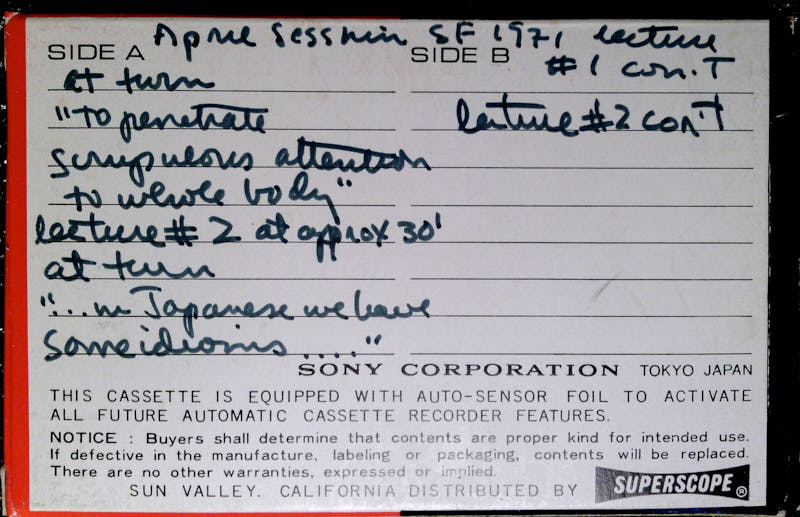 SIDE A April Sesshin SF 1971 lecture
SIDE B #1 con.T
at turn
"to penetrate
lecture #2 con't
scrupulous attention
to whole body"
lecture #2 at approx 30'
at turn
"...in Japanese we have
some idioms...."
SONY CORPORATION TOKYO JAPAN
THIS CASSETTE IS EQUIPPED WITH AUTO-SENSOR FOIL TO ACTIVATE
ALL FUTURE AUTOMATIC CASSETTE RECORDER FEATURES.
NOTICE : Buyers shall determine that contents are proper kind for intended use.
If defective in the manufacture, labeling or packaging, contents will be replaced.
There are no other warranties, expressed or implied.
SUN VALLEY. CALIFORNIA DISTRIBUTED BY SUPERSCOPE®